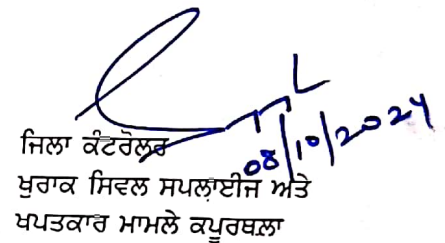 08/10/2024
ਜਿਲਾ ਕੰਟਰੋਲਰ
ਖੁਰਾਕ ਸਿਵਲ ਸਪਲਾਈਜ ਅਤੇ
ਖਪਤਕਾਰ ਮਾਮਲੇ ਕਪੂਰਥਲਾ